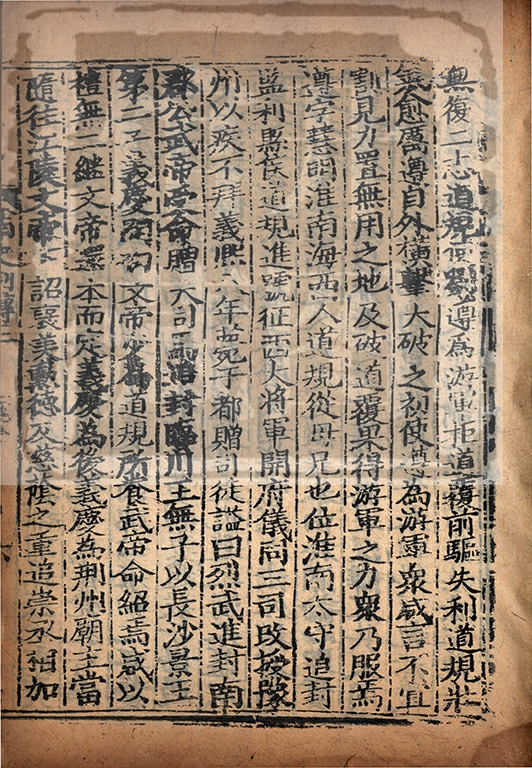 無復二志道規使劉遵為游軍拒道覆前驅失利道規壯
氣愈厲遵自外橫擊大破之初使遵為游軍衆咸言不宜
割見力置無用之地及破道覆果得游軍之力衆乃服焉
遵字慧明淮南海西人道規從母兄也位淮南太守追封
監利縣侯道規進號征西大將軍開府儀同三司改授豫
州以疾不拜義熙八年薨于都贈司徒謚曰烈武進封南
郡公武帝受命贈大司馬追封臨川王無子以長沙景王
第二子義慶嗣初文帝少為道規所養武帝命紹焉咸以
禮無二繼文帝還本而定義慶為後義慶為荊州廟主當
隨往江陵文帝下詔褒美勳德及慈蔭之重追崇丞相加